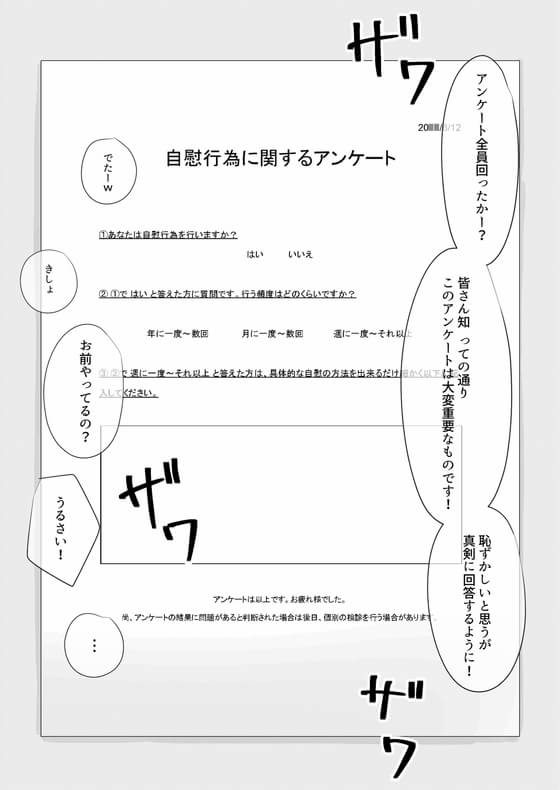 ザワ
アンケート全員回ったかー？
20
/12
自慰行為に関するアンケート
でたーw
①あなたは自慰行為を行いますか？
はい　　いいえ
きしょ
② ①で はい と答えた方に質問です。行う頻度はどのくらいですか？
皆さん知 っての通り
このアンケートは大変重要なものです！
年に一度〜数回　　月に一度〜数回　　週に一度〜それ以上
お前やってるの？
③ ②で 週に一度〜それ以上 と答えた方は、具体的な自慰の方法を出来るだけ細かく以下に
入してください。
ザワ
うるさい！
恥ずかしいと思うが
真剣に回答するように！
アンケートは以上です。お疲れ様でした。
尚、アンケートの結果に問題があると判断された場合は後日、個別の検診を行う場合があります。
…
ザワ